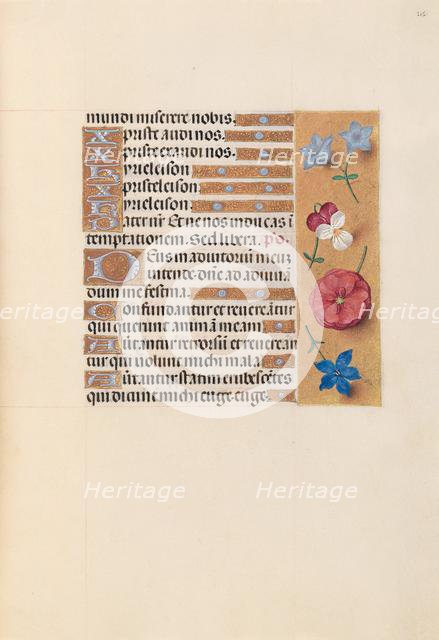 mundi miserere nobis.
Xpriste audi nos.
Xpriste exaudi nos.
kyrieleison
xpristeleison.
kyrieleison.
Pater nr̄. Et ne nos inducas ī
temptationem. Sed libera. ps.
Deus in adiutoriū meuȝ
intende. dn̄e ad adiuuā
dum me festina.
Confundantur et reuereātur
qui querunt animā meam
Auertantur retrorsū et erubeant
tur qui uolunt michi mala
Auertantur statim erubescētes
qui dicunt michi euge euge.
Heritage
Heritage
Heritage
Heritage
Heritage
Heritage